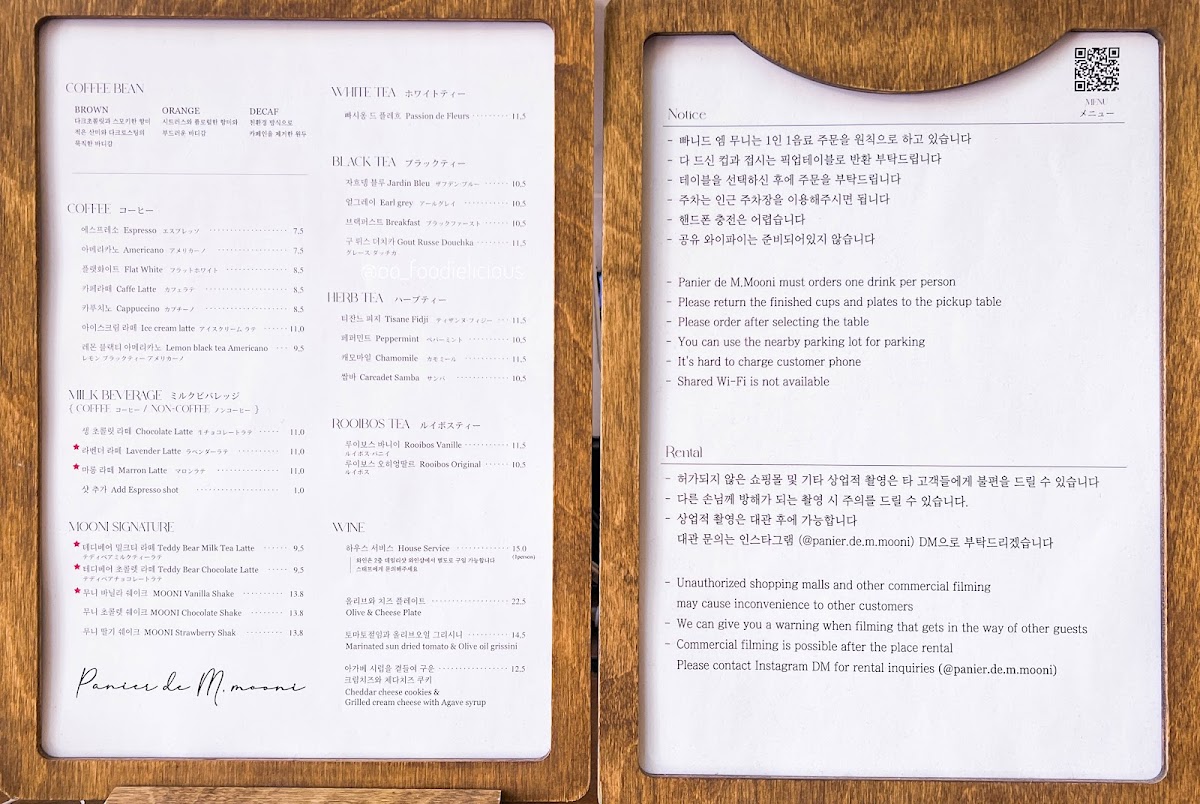 COFFEE BEAN
BROWN
다크초콜릿과 스모키한 향미
적은 산미와 다크로스팅의
묵직한 바디감
ORANGE
시트러스와 플로럴한 향미와
부드러운 바디감
DECAF
친환경 방식으로
카페인을 제거한 원두
COFFEE コーヒー
에스프레소 Espresso エスプレッソ 7.5
아메리카노 Americano アメリカーノ 7.5
플랫화이트 Flat White フラットホワイト 8.5
카페라떼 Caffe Latte カフェラテ 8.5
카푸치노 Cappuccino カプチーノ 8.5
아이스크림 라떼 Ice cream latte アイスクリーム ラテ 11.0
레몬 블랙티 아메리카노 Lemon black tea Americano 9.5
レモン ブラックティー アメリカーノ
MILK BEVERAGE ミルクビバレッジ
{ COFFEE コーヒー / NON-COFFEE ノンコーヒー }
생 초콜릿 라떼 Chocolate Latte 生チョコレートラテ 11.0
라벤더 라떼 Lavender Latte ラベンダーラテ 11.0
마롱 라떼 Marron Latte マロンラテ 11.0
샷 추가 Add Espresso shot 1.0
MOONI SIGNATURE
테디베어 밀크티 라떼 Teddy Bear Milk Tea Latte 9.5
テディベアミルクティーラテ
테디베어 초콜렛 라떼 Teddy Bear Chocolate Latte 9.5
テディベアチョコレートラテ
무니 바닐라 쉐이크 MOONI Vanilla Shake 13.8
무니 초콜렛 쉐이크 MOONI Chocolate Shake 13.8
무니 딸기 쉐이크 MOONI Strawberry Shak 13.8
Panier de M.mooni
WHITE TEA ホワイトティー
빠시옹 드 플레흐 Passion de Fleurs 11.5
BLACK TEA ブラックティー
자흐뎅 블루 Jardin Bleu ザフデン ブルー 10.5
얼그레이 Earl grey アールグレイ 10.5
브랙퍼스트 Breakfast ブラックファースト 10.5
구 뤼스 더치카 Gout Russe Douchka 11.5
グレース ダッチカ
@oo_foodielicious
HERB TEA ハーブティー
티잔드 피지 Tisane Fidji ティザンヌ フィジー 11.5
페퍼민트 Peppermint ペパーミント 10.5
캐모마일 Chamomile カモミール 11.5
쌈바 Carcadet Samba サンバ 10.5
ROOIBOS TEA ルイボスティー
루이보스 바니이 Rooibos Vanille 11.5
ルイボス バニイ
루이보스 오히엉딸르 Rooibos Original 10.5
ルイボス
WINE
하우스 서비스 House Service 15.0
(1person)
와인은 2층 데일리샷 와인샵에서 별도로 구입 가능합니다
스태프에게 문의해주세요
올리브와 치즈 플레이트 22.5
Olive & Cheese Plate
토마토절임과 올리브오일 그리시니 14.5
Marinated sun dried tomato & Olive oil grissini
아가베 시럽을 곁들여 구운 12.5
크림치즈와 체다치즈 쿠키
Cheddar cheese cookies &
Grilled cream cheese with Agave syrup
MENU
メニュー
Notice
- 빠니드 엠 무니는 1인 1음료 주문을 원칙으로 하고 있습니다
- 다 드신 컵과 접시는 픽업테이블로 반환 부탁드립니다
- 테이블을 선택하신 후에 주문을 부탁드립니다
- 주차는 인근 주차장을 이용해주시면 됩니다
- 핸드폰 충전은 어렵습니다
- 공유 와이파이는 준비되어있지 않습니다
- Panier de M.Mooni must orders one drink per person
- Please return the finished cups and plates to the pickup table
- Please order after selecting the table
- You can use the nearby parking lot for parking
- It's hard to charge customer phone
- Shared Wi-Fi is not available
Rental
- 허가되지 않은 쇼핑몰 및 기타 상업적 촬영은 타 고객들에게 불편을 드릴 수 있습니다
- 다른 손님께 방해가 되는 촬영 시 주의를 드릴 수 있습니다.
- 상업적 촬영은 대관 후에 가능합니다
대관 문의는 인스타그램 (@panier.de.m.mooni) DM으로 부탁드리겠습니다
- Unauthorized shopping malls and other commercial filming
may cause inconvenience to other customers
- We can give you a warning when filming that gets in the way of other guests
- Commercial filming is possible after the place rental
Please contact Instagram DM for rental inquiries (@panier.de.m.mooni)